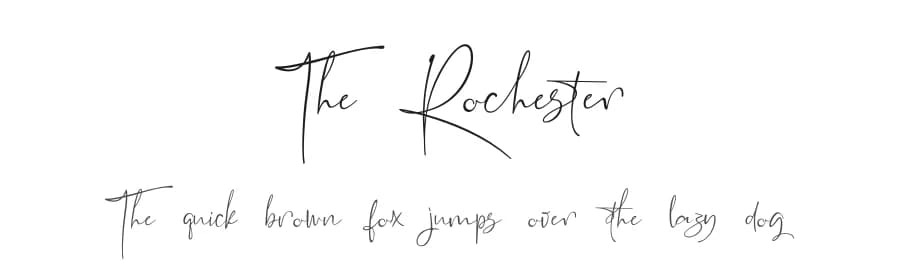 The Rochester
The quick brown fox jumps over the lazy dog